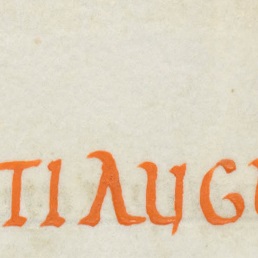 TI AUGU